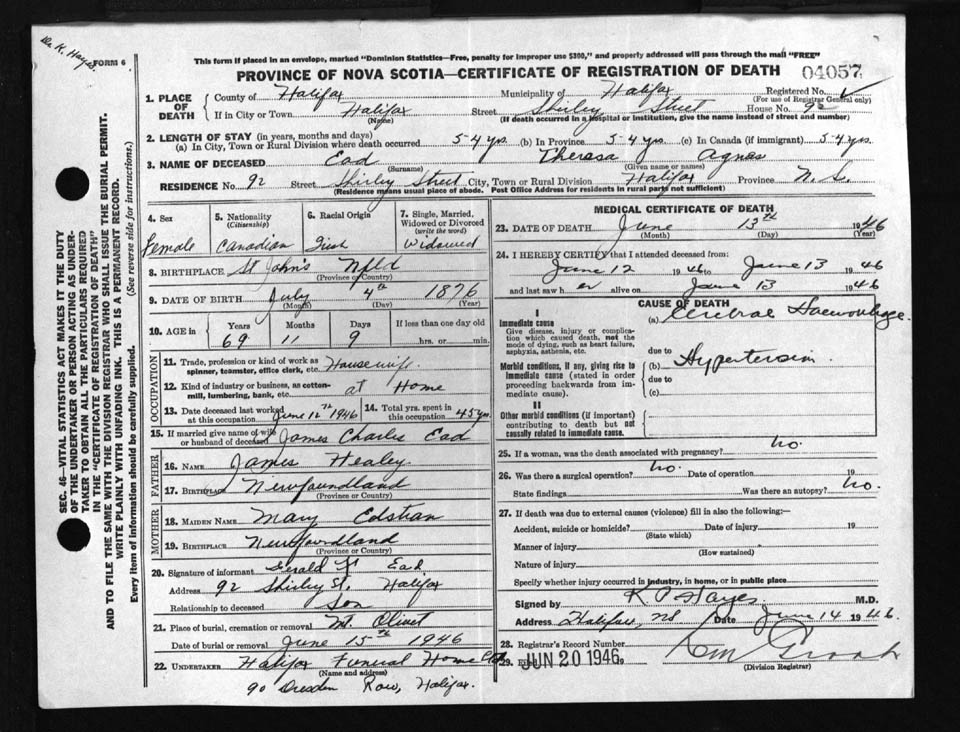 Dr. K. Hayes.
FORM 6
This form if placed in an envelope, marked "Dominion Statistics—Free, penalty for improper use $300," and properly addressed will pass through the mail "FREE"
PROVINCE OF NOVA SCOTIA—CERTIFICATE OF REGISTRATION OF DEATH 04057
1. PLACE OF DEATH County of Halifax Municipality of Halifax Registered No. (For use of Registrar General only)
If in City or Town Halifax (Name) Street Shirley Street House No. 92
(If death occurred in a hospital or institution, give the name instead of street and number)
2. LENGTH OF STAY (in years, months and days)
(a) In City, Town or Rural Division where death occurred 54 yrs. (b) In Province 54 yrs. (c) In Canada (if immigrant) 54 yrs.
3. NAME OF DECEASED Ead (Surname) Theresa Agnes (Given name or names)
RESIDENCE No. 92 Street Shirley Street City, Town or Rural Division Halifax Province N.S.
(Residence means usual place of abode. Post Office Address for residents in rural part not sufficient)
4. Sex Female
5. Nationality (Citizenship) Canadian
6. Racial Origin Irish
7. Single, Married, Widowed or Divorced (write the word) Widowed
8. BIRTHPLACE St John's Nfld (Province or Country)
9. DATE OF BIRTH July (Month) 4th (Day) 1876 (Year)
10. AGE in Years 69 Months 11 Days 9 If less than one day old hrs. or min.
OCCUPATION
11. Trade, profession or kind of work as spinner, teamster, office clerk, etc. Housewife
12. Kind of industry or business, as cotton-mill, lumbering, bank, etc. at Home
13. Date deceased last worked at this occupation June 12th 1946
14. Total yrs. spent in this occupation 45 yrs.
15. If married give name of wife or husband of deceased James Charles Ead
FATHER
16. NAME James Healey
17. BIRTHPLACE Newfoundland (Province or Country)
MOTHER
18. MAIDEN NAME Mary
19. BIRTHPLACE Newfoundland (Province or Country)
20. Signature of informant Gerald Ead
Address 92 Shirley St. Halifax
Relationship to deceased Son
21. Place of burial, cremation or removal Mt. Olivet
Date of burial or removal June 15th 1946
22. UNDERTAKER Halifax Funeral Home Ltd
(Name and address)
90 Dresden Row, Halifax.
MEDICAL CERTIFICATE OF DEATH
23. DATE OF DEATH June (Month) 13th (Day) 1946 (Year)
24. I HEREBY CERTIFY that I attended deceased from:
June 12 1946 to June 13 1946
and last saw her alive on June 13 1946
CAUSE OF DEATH
I
Immediate cause (a) Cerebral Haemorrhage
Give disease, injury or complication which caused death, not the mode of dying, such as heart failure, asphyxia, asthenia, etc.
due to
Morbid conditions, if any, giving rise to immediate cause (stated in order proceeding backwards from immediate cause). (b) Hypertension
due to
(c)
II
Other morbid conditions (if important) contributing to death but not causally related to immediate cause.
25. If a woman, was the death associated with pregnancy? No.
26. Was there a surgical operation? No. Date of operation 19
State findings Was there an autopsy? No.
27. If death was due to external causes (violence) fill in also the following:—
Accident, suicide or homicide? (State which) Date of injury 19
Manner of injury (How sustained)
Nature of injury
Specify whether injury occurred in industry, in home, or in public place
Signed by K. P. Hayes M.D.
Address Halifax, NS Date June 14 1946
28. Registrar's Record Number
29. Filed JUN 20 1946
(Division Registrar)
SEC. 46—VITAL STATISTICS ACT MAKES IT THE DUTY OF THE UNDERTAKER OR PERSON ACTING AS UNDERTAKER TO OBTAIN ALL THE PARTICULARS REQUIRED IN THE "CERTIFICATE OF REGISTRATION OF DEATH" AND TO FILE THE SAME WITH THE DIVISION REGISTRAR WHO SHALL ISSUE THE BURIAL PERMIT.
WRITE PLAINLY WITH UNFADING INK. THIS IS A PERMANENT RECORD.
Every item of information should be carefully supplied. (See reverse side for instructions.)